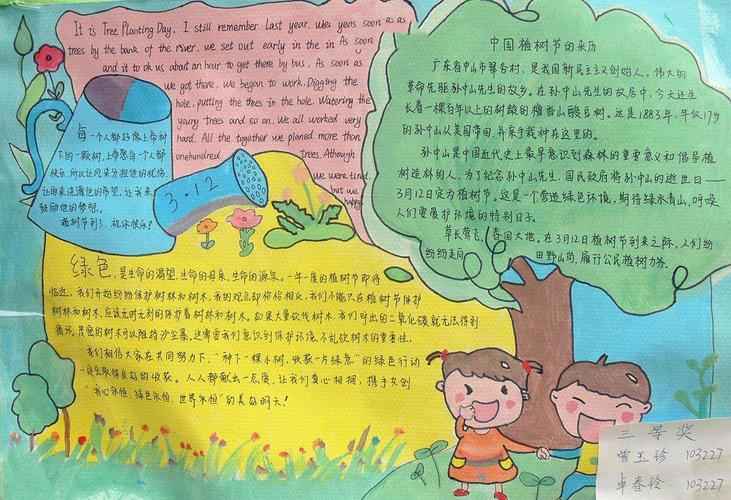 It is Tree Planting Day, I still remember last year, we
trees by the bank of the river, we set out early in the
and it took us about an hour to get there by bus, As soon as
we got there, we began to work, Digging the
hole, putting the trees in the hole, Watering the
young trees and so on, We all worked very
hard, All the together we planed more than
onehundred trees, Although
we were tired
but we
happy
每一个人都好像上帝种
下的一颗树
植树节到了,祝你快乐!
3.12
中国植树节的来历
广东省中山市翠亨村,是我国新民主主义创始人、伟大的
革命先驱孙中山先生的故乡。在孙中山先生的故居中,今天还生
长着一棵百年以上的树龄的檀香山酸豆树。这是1883年,年仅17岁
的孙中山从美国带回,并亲手栽种在这里的。
孙中山是中国近代史上最早意识到森林的重要意义和倡导植
树造林的人。为了纪念孙中山先生,国民政府将孙中山的逝世日——
3月12日定为植树节。这是一个营造绿色环境,期待绿水青山,呼唤
人们重展护环境的特别日子。
草长莺飞,春回大地。在3月12日植树节到来之际,人们纷
纷纷走向 田野山岗,履行公民植树义务。
绿色,是生命的渴望,生命的母亲,生命的源泉。一年一度的植树节即将
临近,我们开始纷纷保护树林和树木,我的观点却恰恰相反,我们不能只在植树节保护
树林和树木,应该无时无刻的保护着树林和树木。如果大量砍伐树木,我们呼出的二氧化碳就无法得到
循环,黑色的树木可以阻挡沙尘暴。这需要我们意识到保护环境、不乱砍树木的重要性。
我们相信大家在共同努力下,“种下一棵小树,收获一片绿意”的绿色行动
一定会取得良好的收获。人人都献出一点爱,让我们真心相拥,携手共创
“我心永恒,绿色永恒,世界永恒”的美好明天!
三等奖
103227
103227